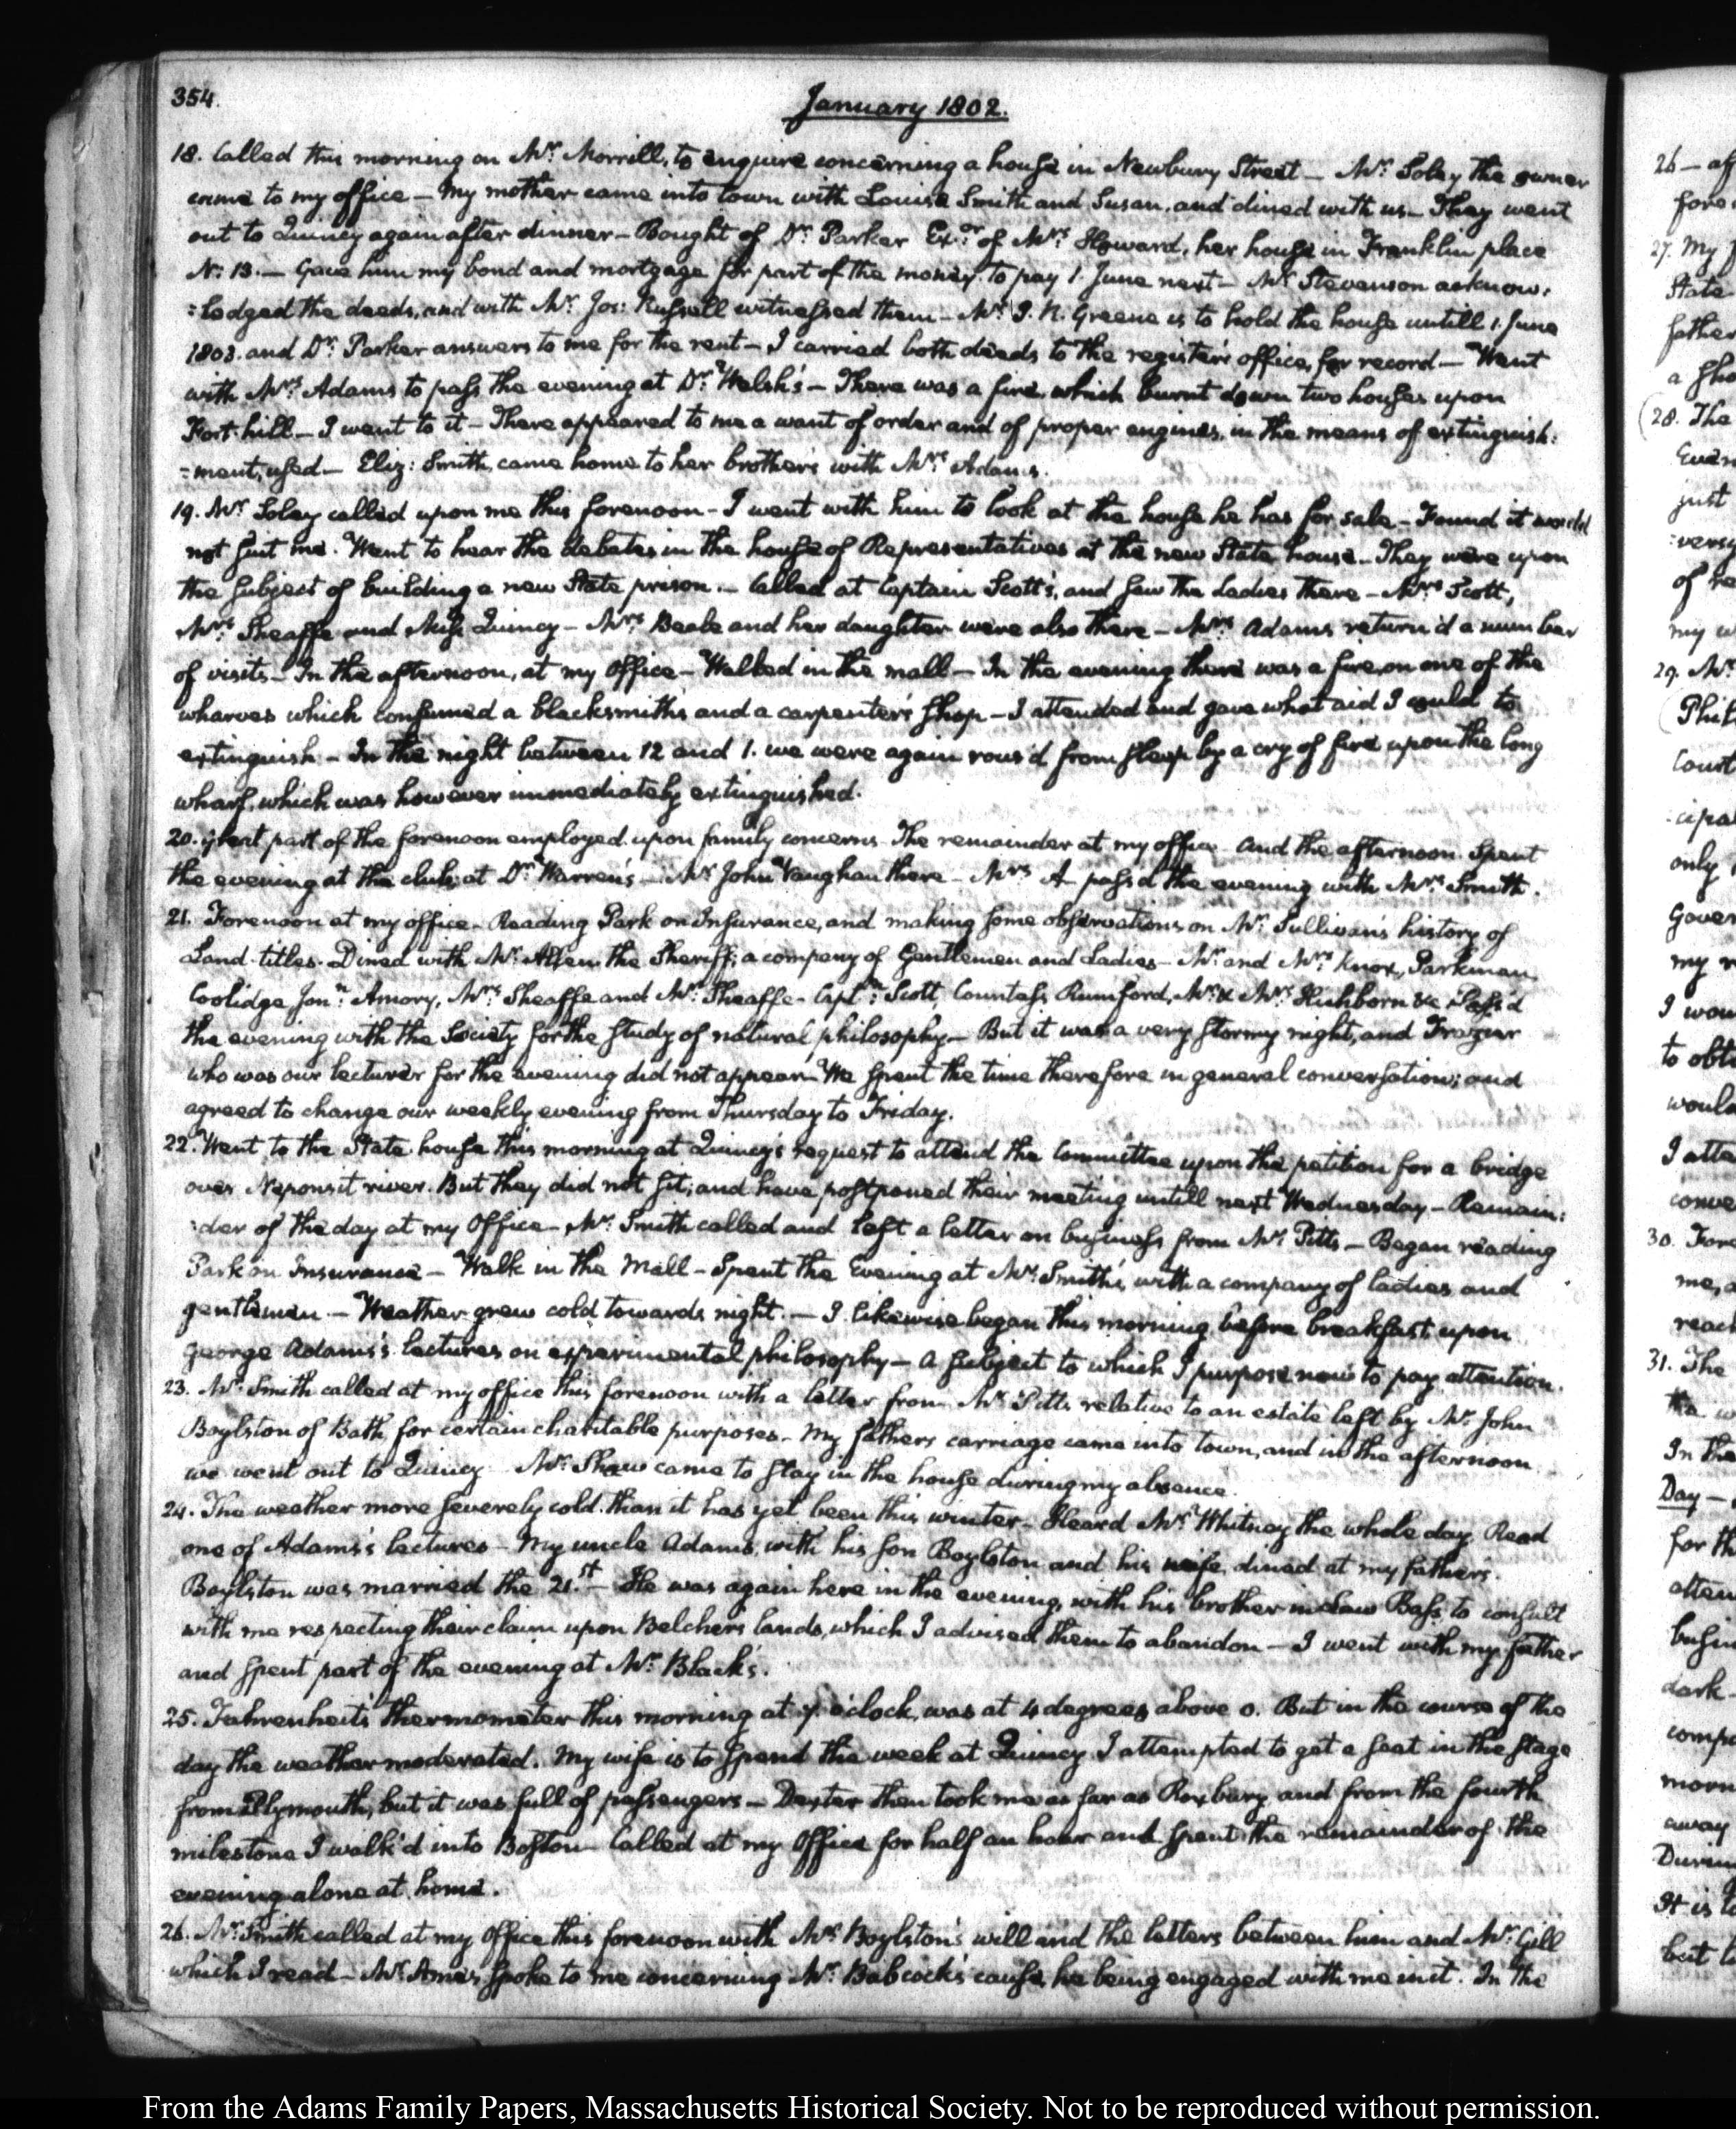 354.
January 1802.
18. Called this morning on Mr. Morrill, to enquire concerning a house in Newbury Street — Mr. Soley the owner
came to my office — My mother came into town with Louisa Smith and Susan, and dined with us — They went
out to Quincy again after dinner — Bought of Dr. Parker Exor. of Mrs. Howard, her house in Franklin place
N: 13. — Gave him my bond and mortgage for part of the money, to pay 1. June next — Mr. Stevenson acknow:
:ledged the deeds, and with Mr. Jos: Russell witnessed them — Mr. Greene is to hold the house untill 1. June
1803. and Dr. Parker answers to me for the rent — I carried both deeds to the register's office, for record — Went
with Mrs. Adams to pass the evening at Dr. Welsh's — There was a fire, which burnt down two houses upon
Fort-hill — I went to it — There appeared to me a want of order and of proper engines, in the means of extinguish:
:ment, used — Eliz: Smith, came home to her brother's with Mrs. Adams.
19. Mr. Soley called upon me this forenoon — I went with him to look at the house he has for sale — Found it would
not suit me. Went to hear the debates in the house of Representatives at the new State house — They were upon
the subject of building a new State prison. — Called at Captain Scott's, and saw the Ladies there — Mrs. Scott,
Mrs. Sheaffe and Miss Quincy — Mrs. Beale and her daughter were also there — Mrs. Adams return'd a number
of visits — In the afternoon, at my Office — Walked in the mall — In the evening there was a fire on one of the
wharves which consumed a blacksmith's and a carpenter's shop — I attended and gave what aid I could to
extinguish — In the night between 12 and 1. we were again rous'd from sleep by a cry of fire upon the long
wharf, which was however immediately extinguished.
20. Great part of the forenoon employed upon family concerns. The remainder at my office. And the afternoon. Spent
the evening at the club, at Dr. Warren's — Mr. John Vaughan there — Mrs. A pass'd the evening with Mrs. Smith.
21. Forenoon at my office — Reading Park on Insurance, and making some observations on Mr. Sullivan's history of
Land-titles. Dined with Mr. Allen the Sheriff; a company of Gentlemen and Ladies — Mr. and Mrs. Knox, Parkman,
Coolidge, Jonn. Amory, Mrs. Sheaffe and Mr. Sheaffe — Captn. Scott, Countess Rumford, Mr. & Mrs. Hichborn &c. Pass'd
the evening with the Society for the study of natural philosophy — But it was a very stormy night, and Frazier
who was our lecturer for the evening did not appear — We spent the time therefore in general conversation; and
agreed to change our weekly evening from Thursday to Friday.
22. Went to the State-house this morning at Quincy's request to attend the Committee upon the petition for a bridge
over Neponsit river. But they did not sit; and have postponed their meeting untill next Wednesday — Remain:
:der of the day at my Office — Mr. Smith called and left a letter on business from Mr. Pitts — Began reading
Park on Insurance — Walk in the Mall — Spent the Evening at Mr. Smith's, with a company of ladies and
gentlemen. — Weather grew cold towards night. — I likewise began this morning before breakfast upon
George Adams's lectures on experimental philosophy — A subject to which I purpose now to pay attention.
23. Mr. Smith called at my office this forenoon with a letter from Mr. Pitts relative to an estate left by Mr. John
Boylston of Bath, for certain charitable purposes — My father's carriage came into town, and in the afternoon
we went out to Quincy — Mr. Shaw came to stay in the house during my absence.
24. The weather more severely cold than it has yet been this winter — Heard Mr. Whitney the whole day. Read
one of Adams's lectures — My uncle Adams, with his son Boylston and his wife, dined at my father's.
Boylston was married the 21.st — He was again here in the evening, with his brother in law Bass, to consult
with me respecting their claim upon Belcher's lands, which I advised them to abandon — I went with my father
and spent part of the evening at Mr. Black's.
25. Fahrenheit's thermometer this morning at 7. o'clock, was at 4 degrees above 0. But in the course of the
day the weather moderated. My wife is to spend the week at Quincy. I attempted to get a seat in the stage
from Plymouth, but it was full of passengers — Dexter then took me as far as Roxbury and from the fourth
milestone I walk'd into Boston — Called at my Office for half an hour and spent the remainder of the
evening alone at home.
26. Mr. Smith called at my Office this forenoon with Mr. Boylston's will and the letters between him and Mr. Gill
which I read — Mr. Ames spoke to me concerning Mr. Babcock's cause, he being engaged with me in it. In the
26 —
27. My
State
father
28. The
just
of
my
29. Mr.
only
my
I
to
would
I
30.
me,
31. The
In the
Day —
for
dark
morn
away
It is
but
From the Adams Family Papers, Massachusetts Historical Society. Not to be reproduced without permission.